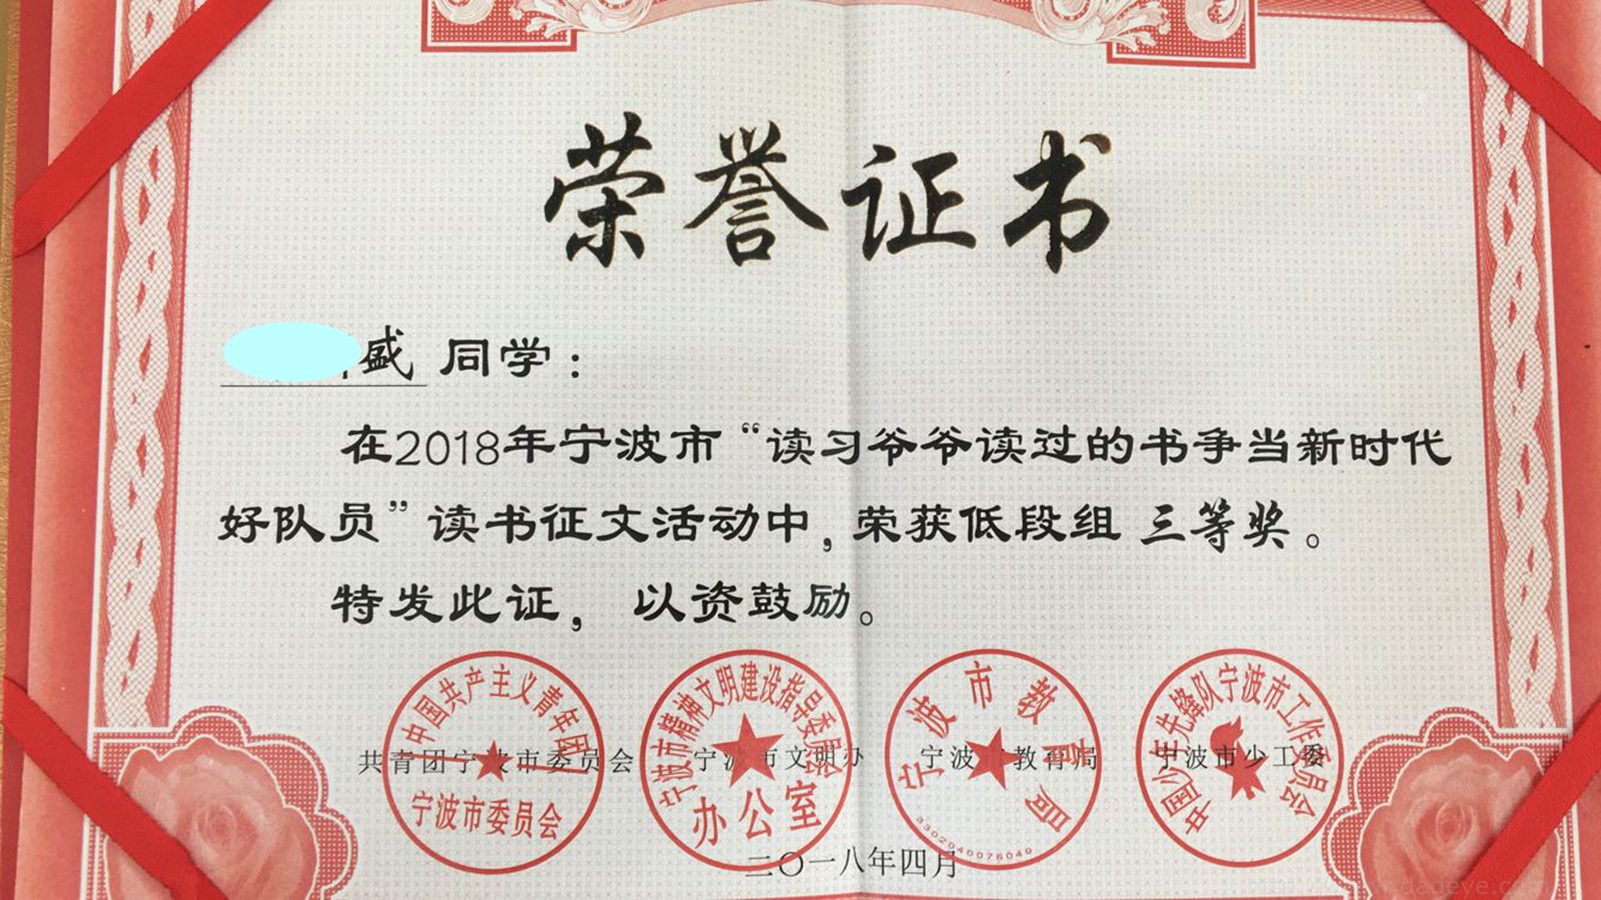 荣誉证书
盛 同学：
在2018年宁波市“读习爷爷读过的书争当新时代
好队员”读书征文活动中，荣获低段组 三等奖。
特发此证， 以资鼓励。
中国共产主义青年团
宁波市委员会
宁波市精神文明建设指导委员会
办公室
宁波市教育局
3302040076040
中国少年先锋队宁波市工作委员会
共青团宁波市委员会 宁波市文明办 宁波市教育局 宁波市少工委
二〇一八年四月